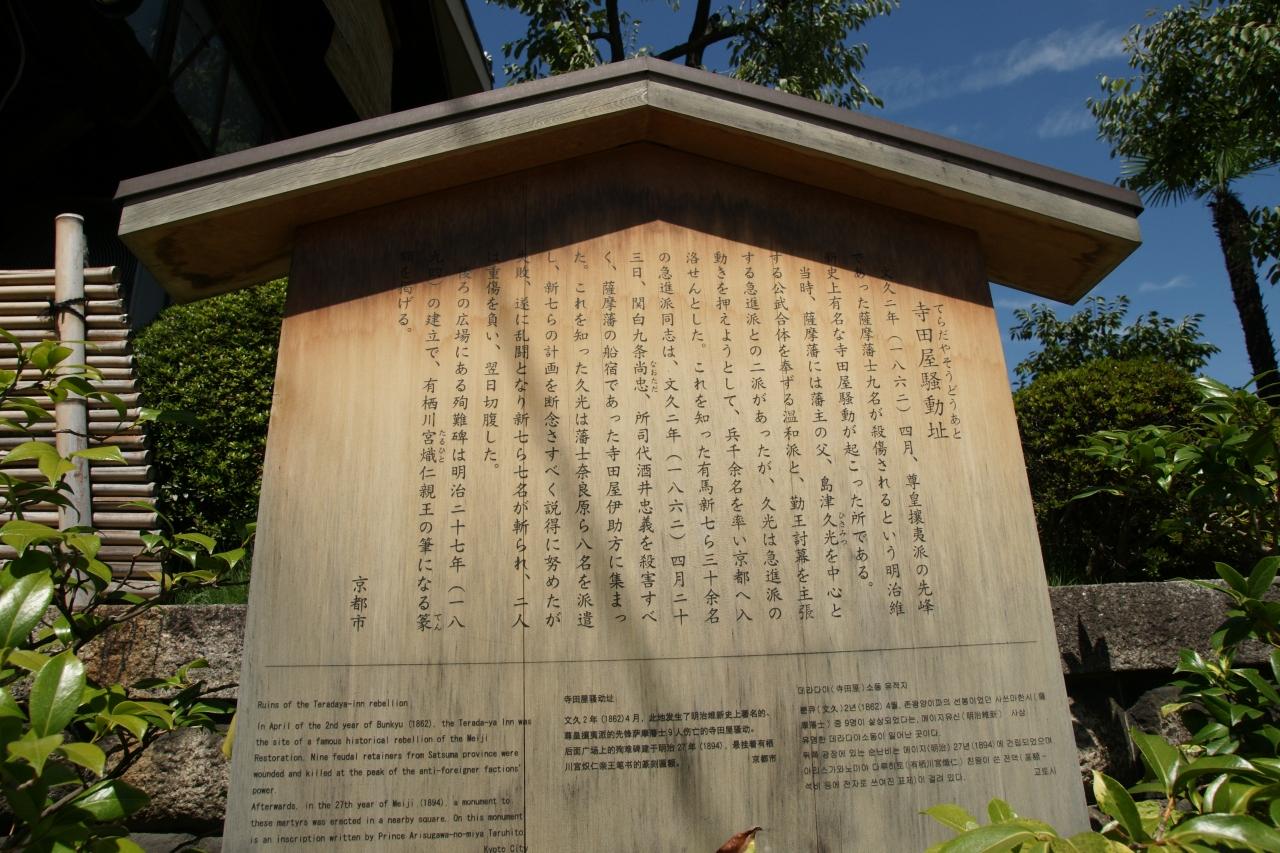 てらだやそうどうあと
寺田屋騒動址
文久二年（一八六二）四月、尊皇攘夷派の先峰
であった薩摩藩士九名が殺傷されるという明治維
新史上有名な寺田屋騒動が起こった所である。
当時、薩摩藩には藩主の父、島津久光を中心と
ひさみつ
する公武合体を奉ずる温和派と、勤王討幕を主張
する急進派との二派があったが、久光は急進派の
動きを押えようとして、兵千余名を率い京都へ入
洛せんとした。これを知った有馬新七ら三十余名
の急進派同志は、文久二年（一八六二）四月二十
三日、関白九条尚忠、所司代酒井忠義を殺害すべ
なおただ
く、薩摩藩の船宿であった寺田屋伊助方に集まっ
た。これを知った久光は藩士奈良原ら八名を派遣
し、新七らの計画を断念さすべく説得に努めたが
失敗、遂に乱闘となり新七ら七名が斬られ、二人
は重傷を負い、翌日切腹した。
後ろの広場にある殉難碑は明治二十七年（一八
九四）の建立で、有栖川宮熾仁親王の筆になる篆
たるひと
てん
額を掲げる。
京都市
Ruins of the Teradaya-inn rebellion
In April of the 2nd year of Bunkyu (1862), the Terada-ya Inn was
the site of a famous historical rebellion of the Meiji
Restoration. Nine feudal retainers from Satsuma province were
wounded and killed at the peak of the anti-foreigner factions'
power.
Afterwards, in the 27th year of Meiji (1894), a monument to
these martyrs was erected in a nearby square. On this monument
is an inscription written by Prince Arisugawa-no-miya Taruhito.
Kyoto City
寺田屋骚动址
文久2年(1862)4月，此地发生了明治维新史上著名的、
尊皇攘夷派的先锋萨摩藩士9人伤亡的寺田屋骚动。
后面广场上的殉难碑建于明治27年(1894)，最挂着有栖
川宫炽仁亲王笔书的篆刻匾额。
京都市
데라다야(寺田屋)소동 유적지
분큐(文久)2년(1862) 4월, 존왕양이파의 선봉이었던 사쓰마한시(薩
摩藩士) 중 9명이 살상되었다는, 메이지유신(明治維新) 사상
유명한 데라다야소동이 일어난 곳이다.
뒤쪽 광장에 있는 순난비는 메이지(明治) 27년(1894)에 건립되었으며
아리스가와노미야 다루히토(有栖川宮熾仁) 친왕이 쓴 전액(篆額-
석비 등에 전자로 쓰여진 표제)이 걸려 있다.
교토시